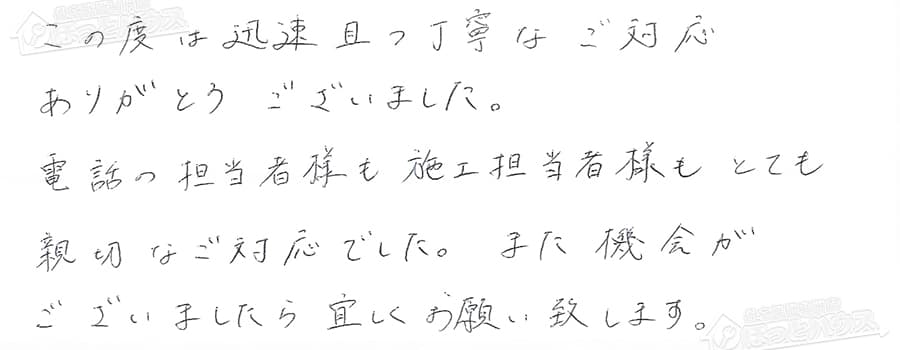 この度は迅速且つ丁寧なご対応
ありがとうございました。
電話の担当者様も施工担当者様もとても
親切なご対応でした。また機会が
ございましたら宜しくお願い致します。